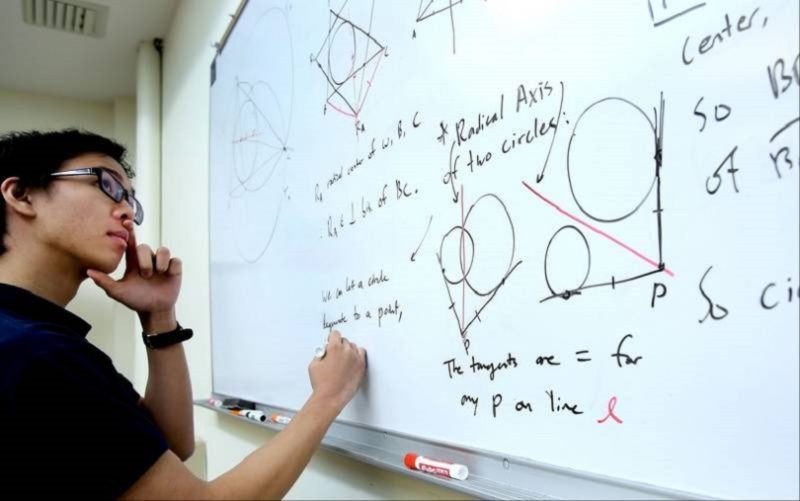 R_A radical center of ω, B, C
∴ R_A ∈ ⊥ bis of BC.
We can let a circle
degenerate to a point,
* Radical Axis
of two circles:
P
P
The tangents are = for
any P on line ℓ
center,
So
of
So ci